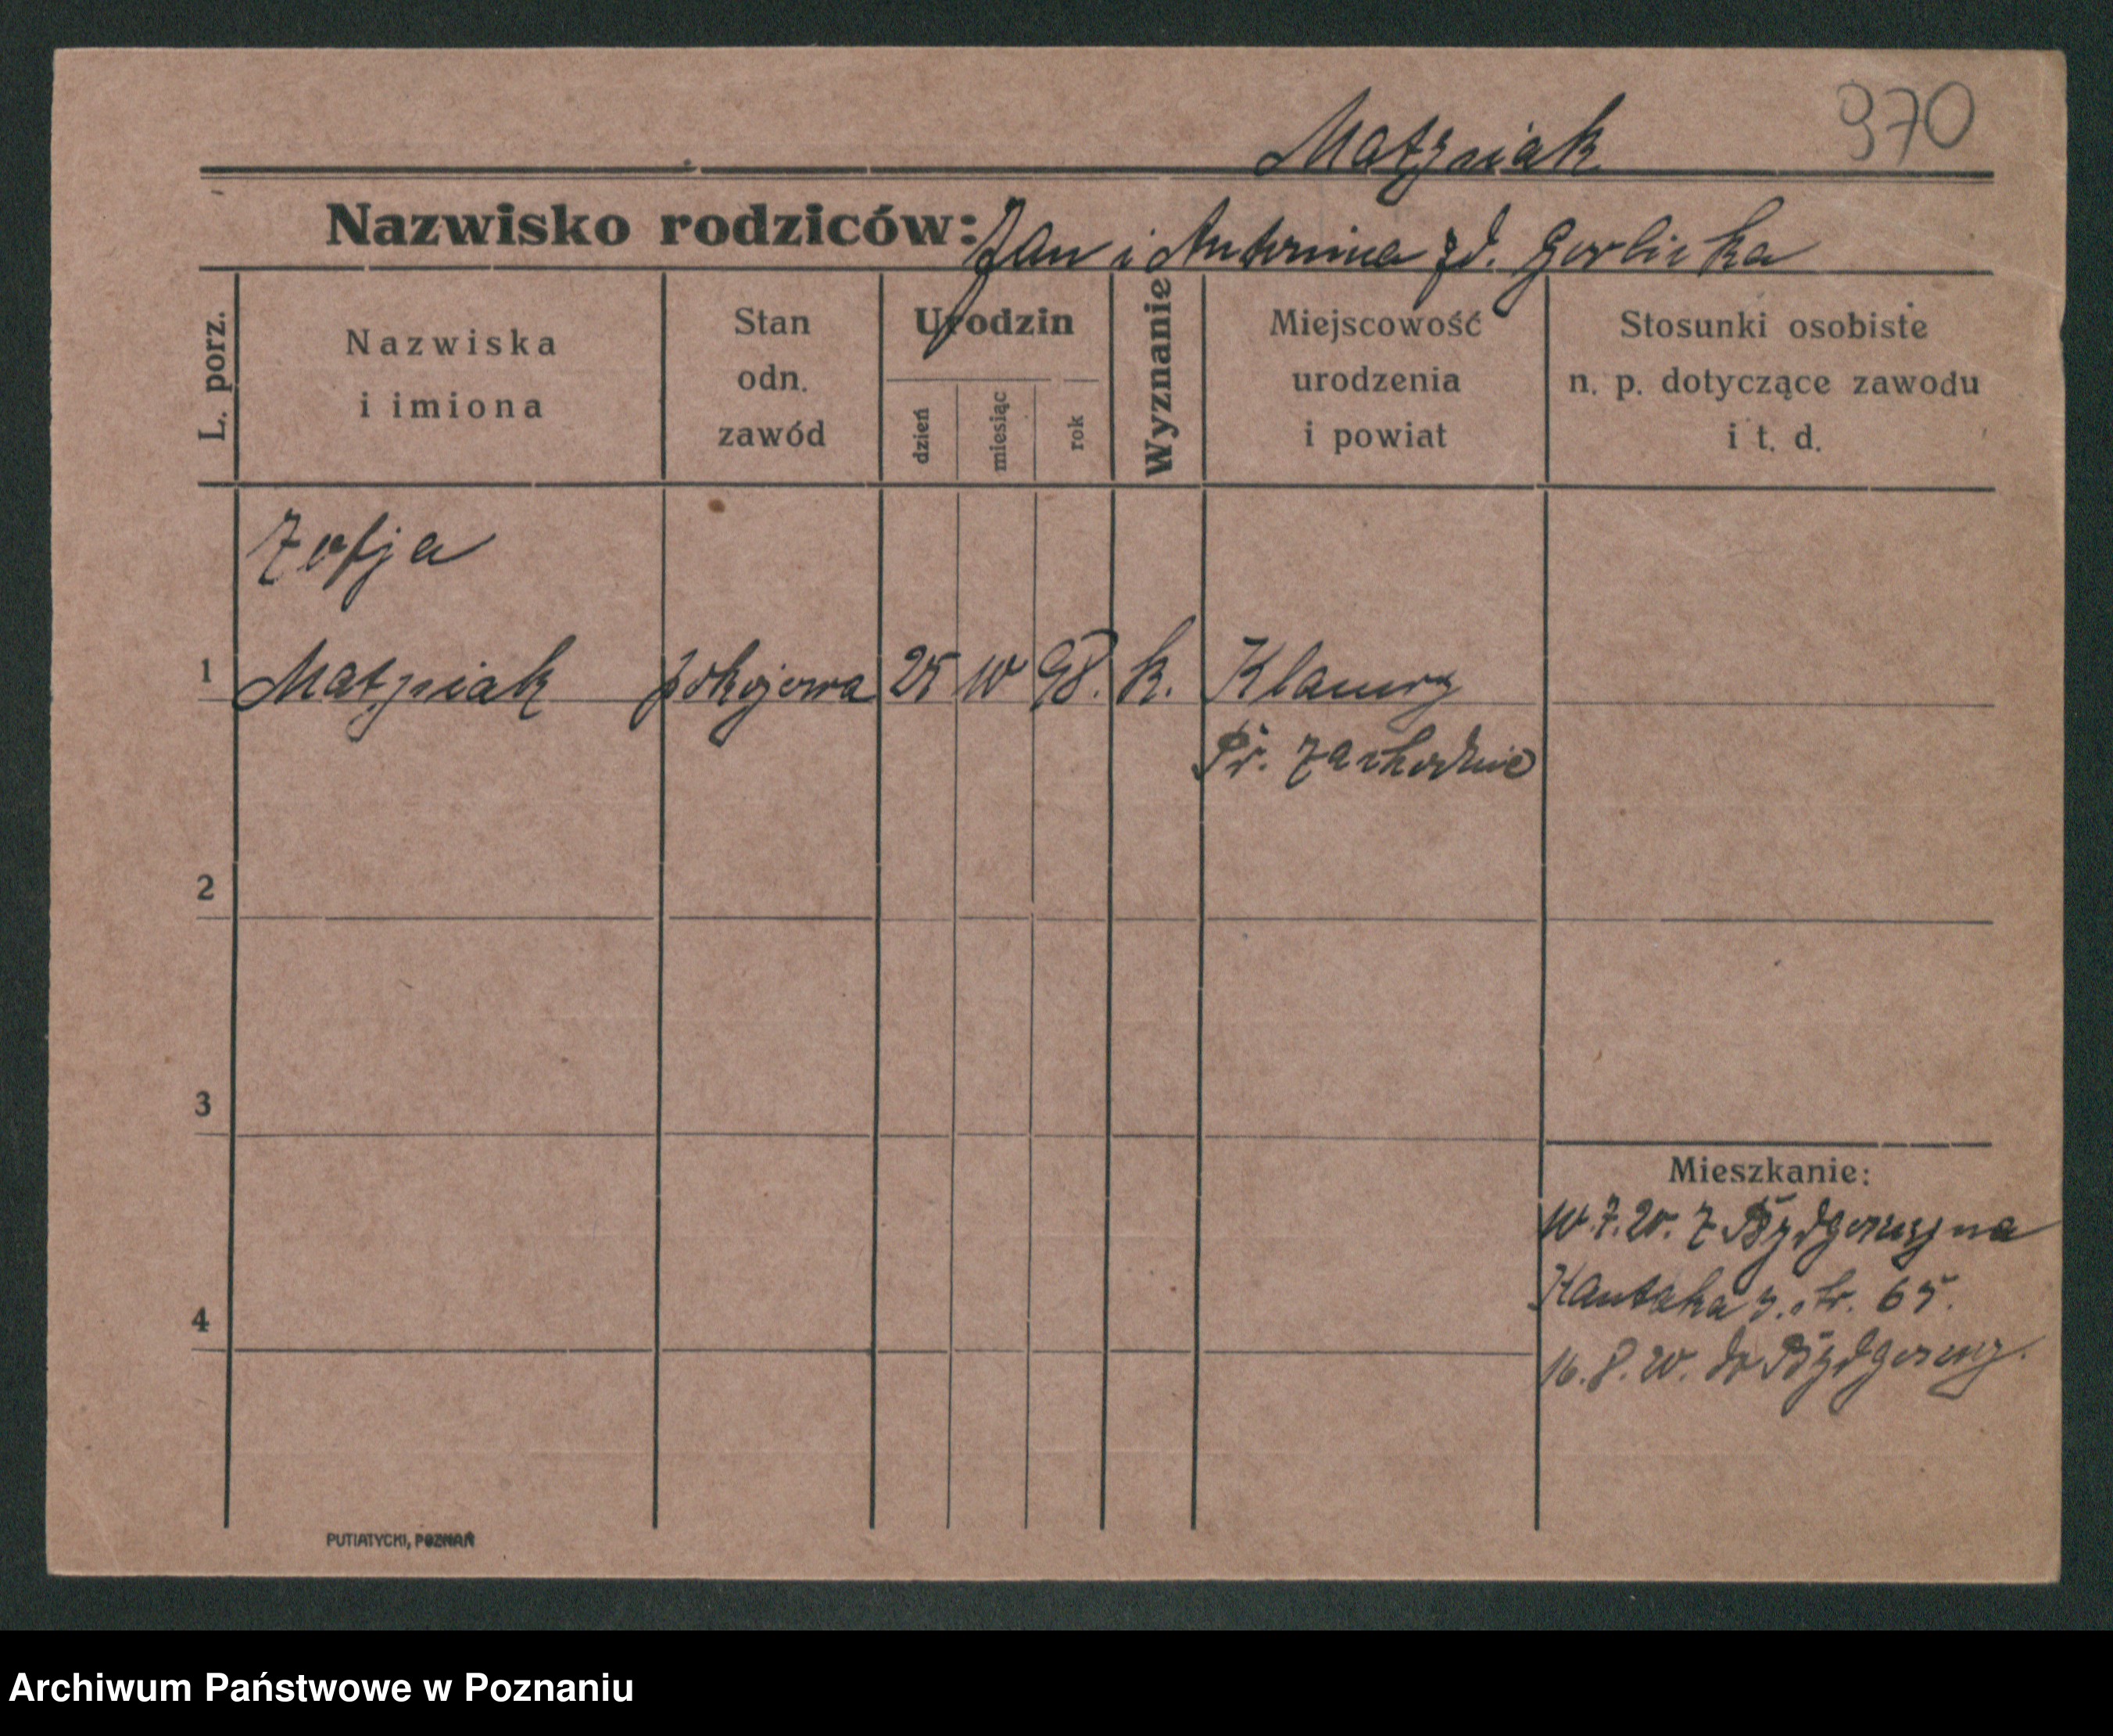 970
Matzniak
Nazwisko rodziców: Jan i Antonina zd. Gorlicka
L. porz.
Nazwiska
i imiona
Stan
odn.
zawód
Urodzin
dzień
miesiąc
rok
Wyznanie
Miejscowość
urodzenia
i powiat
Stosunki osobiste
n. p. dotyczące zawodu
i t. d.
Zofja
1 Matzniak pokojowa 25 10 98. k.
Pr. Zachodnie
2
3
4
Mieszkanie:
10.7.20. z Bydgoszczy na
Kantaka 3. tr. 65.
16.8.20. do Bydgoszczy.
PUTIATYCKI, POZNAŃ
Archiwum Państwowe w Poznaniu